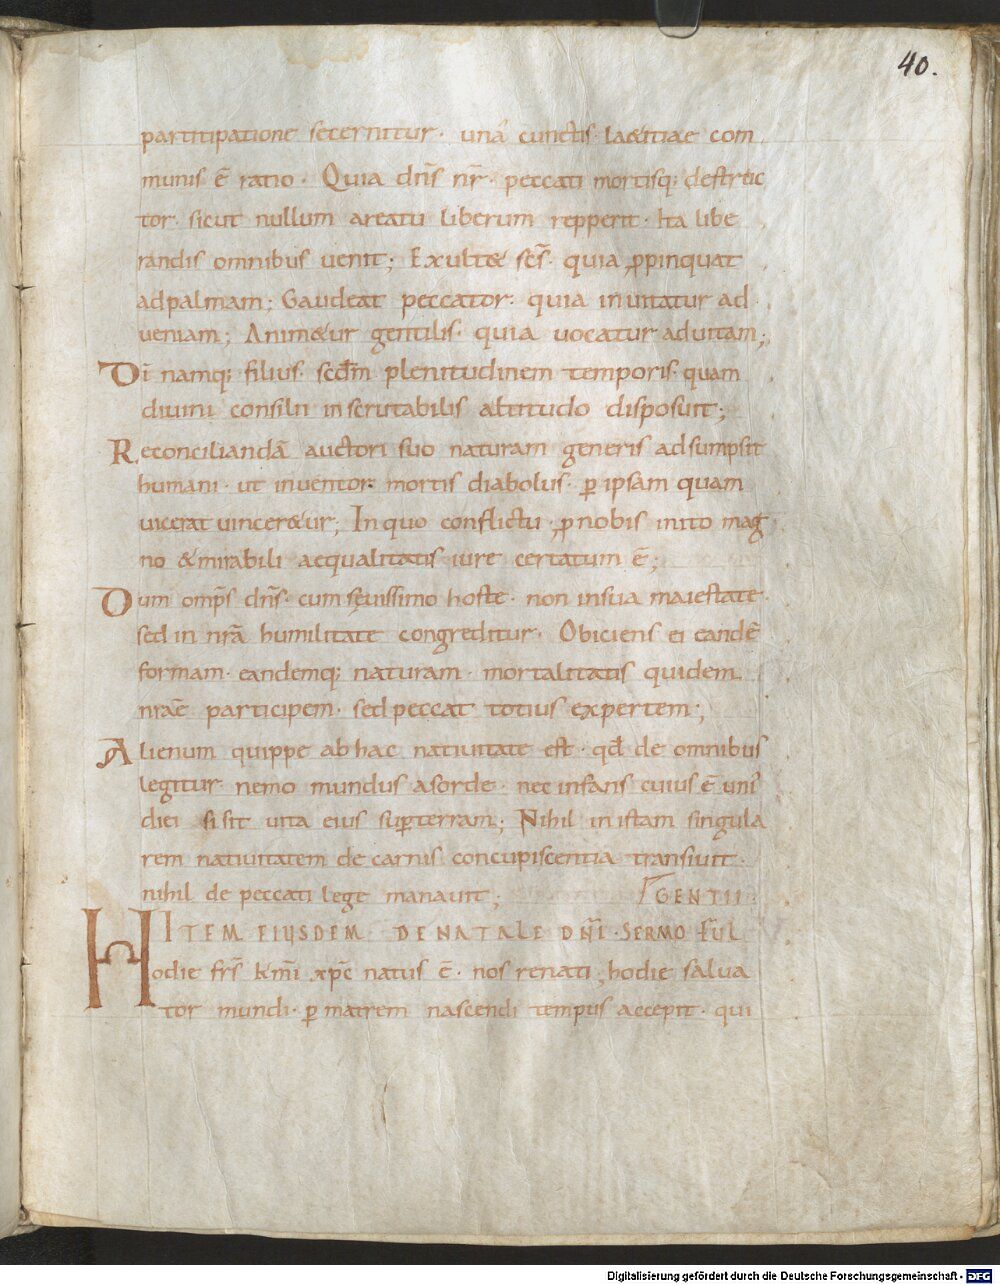 40.
partitipatione secernitur· unā cunctis· lae&itiae com
munis ē ratio · Quia dn̄s nr̄· peccati mortisq; destruc
tor· sicut nullum areatu liberum repperit· Ita libe
randis omnibus uenit; Exult& sc̄s· quia ꝓpinquat
adpalmam; Gaudeat peccator· quia inuitatur ad
ueniam; Anim&ur gentilis· quia uocatur aduitam;
Dī namq; filius· scdm̄ plenitudinem temporis· quam
diuini consilii inscrutabilis altitudo disposuit;
Reconciliandā auctori suo naturam generis adsumpsit
humani· ut inuentor mortis diabolus· ꝑ ipsam quam
uicerat uincer&ur; In quo conflictu ꝓ nobis inito mag
no & mirabili aequalitatis iure certatum ē;
Dum omp̄s dn̄s· cum sęuissimo hoste· non insua maiestate·
sed in nr̄a humilitate congreditur· Obiciens ei eandē
formam· eandemq; naturam· mortalitatis quidem
nr̄ae participem· sed peccat totius expertem;
Alienum quippe ab hac natiuitate est· qđ de omnibus
legitur· nemo mundus asorde· nec infans cuius ē uni
diei si sit uita eius suꝑterram; Nihil in istam singula
rem natiuitatem de carnis concupiscentia transiuit·
nihil de peccati lege manauit; GENTII·
ITEM EIUSDEM DE NATALE DN̄I· SERMO FUL
Hodie fr̄s kmī xp̄c natus ē· nos renati; hodie salua
tor mundi· ꝑ matrem nascendi tempus accepit· qui
Digitalisierung gefördert durch die Deutsche Forschungsgemeinschaft - DFG